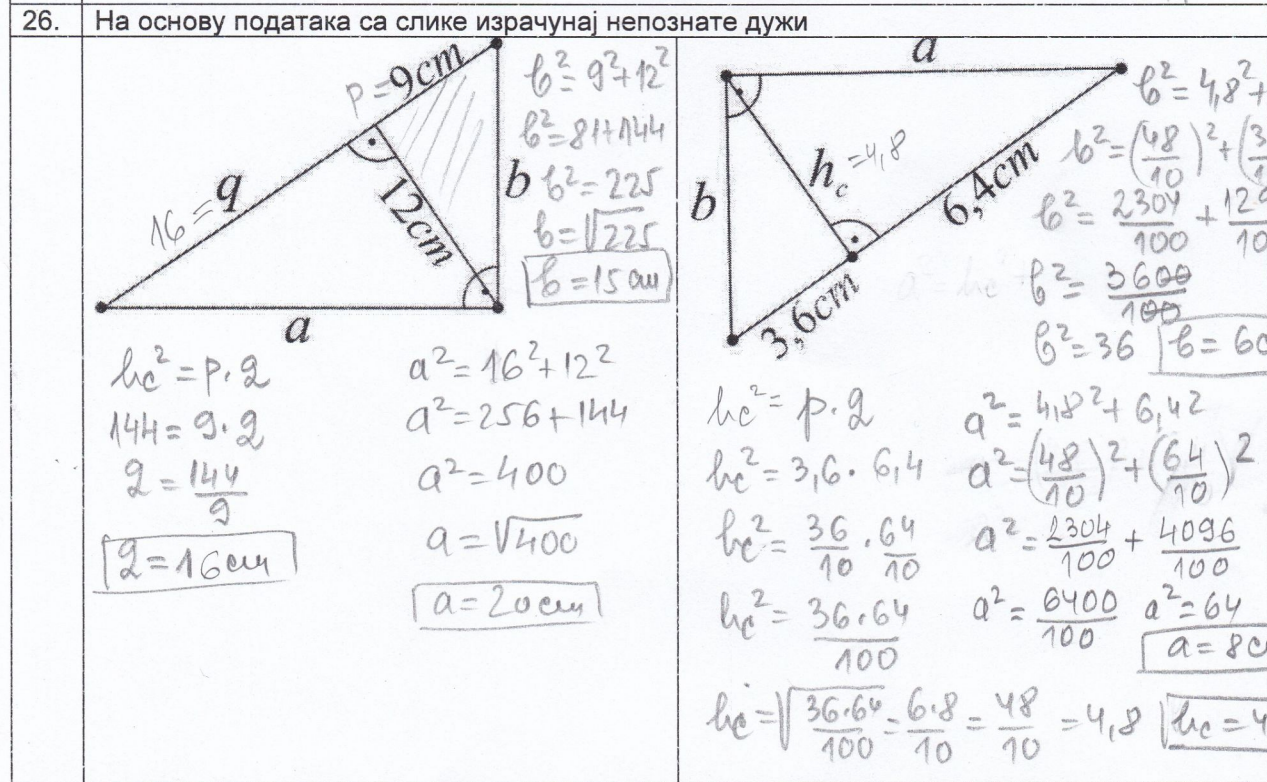 26. На основу података са слике израчунај непознате дужи
p = 9cm
16 = q
12cm
b
a
b² = 9² + 12²
b² = 81 + 144
b² = 225
b = √225
b = 15 cm
hc² = p · q
144 = 9 · q
q = 144/9
q = 16 cm
a² = 16² + 12²
a² = 256 + 144
a² = 400
a = √400
a = 20 cm
a
b
hc = 4,8
6,4cm
3,6cm
b² = 4,8² +
b² = (48/10)² + (3
b² = 2304/100 + 129
b² = 3600/100
b² = 36 b = 6c
hc² = p · q
hc² = 3,6 · 6,4
hc² = 36/10 · 64/10
hc² = 36·64/100
hc = √36·64/100 = 6·8/10 = 48/10 = 4,8 hc = 4
a² = 4,8² + 6,4²
a² = (48/10)² + (64/10)²
a² = 2304/100 + 4096/100
a² = 6400/100 a² = 64
a = 8c